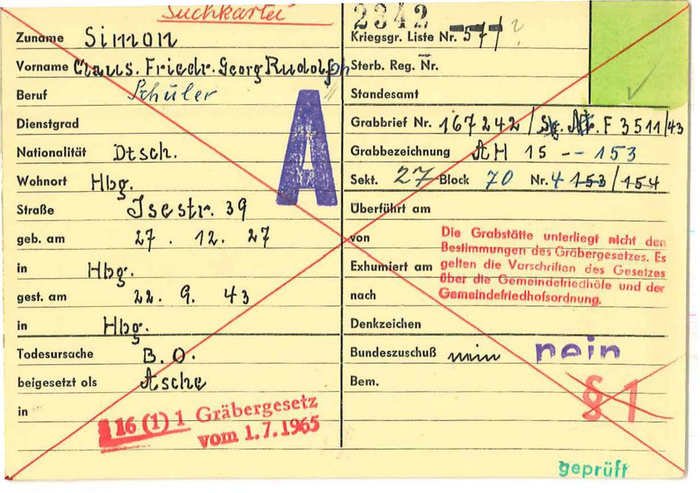 Suchkartei
2342
Zuname Simon
Kriegsgr. Liste Nr. 577 ?
Vorname Claus. Friedr. Georg Rudolph
Sterb. Reg. Nr.
Beruf Schüler
Standesamt
A
Dienstgrad
Grabbrief Nr. 167242 / F 3511/43
Nationalität Dtsch.
Grabbezeichnung AH 15 -- 153
Wohnort Hbg.
Sekt. 27 Block 70 Nr. 4 153/154
Straße Isestr. 39
Überführt am
geb. am 27. 12. 27
von
in Hbg.
Exhumiert am
Die Grabstätte unterliegt nicht den
Bestimmungen des Gräbergesetzes. Es
gelten die Vorschriften des Gesetzes
über die Gemeindefriedhöfe und der
Gemeindefriedhofsordnung.
gest. am 22. 9. 43
nach
in Hbg.
Denkzeichen
Todesursache B.O.
Bundeszuschuß nein nein
beigesetzt als Asche
Bem.
§ 1
in
§ 16 (1) 1 Gräbergesetz
vom 1.7.1965
geprüft